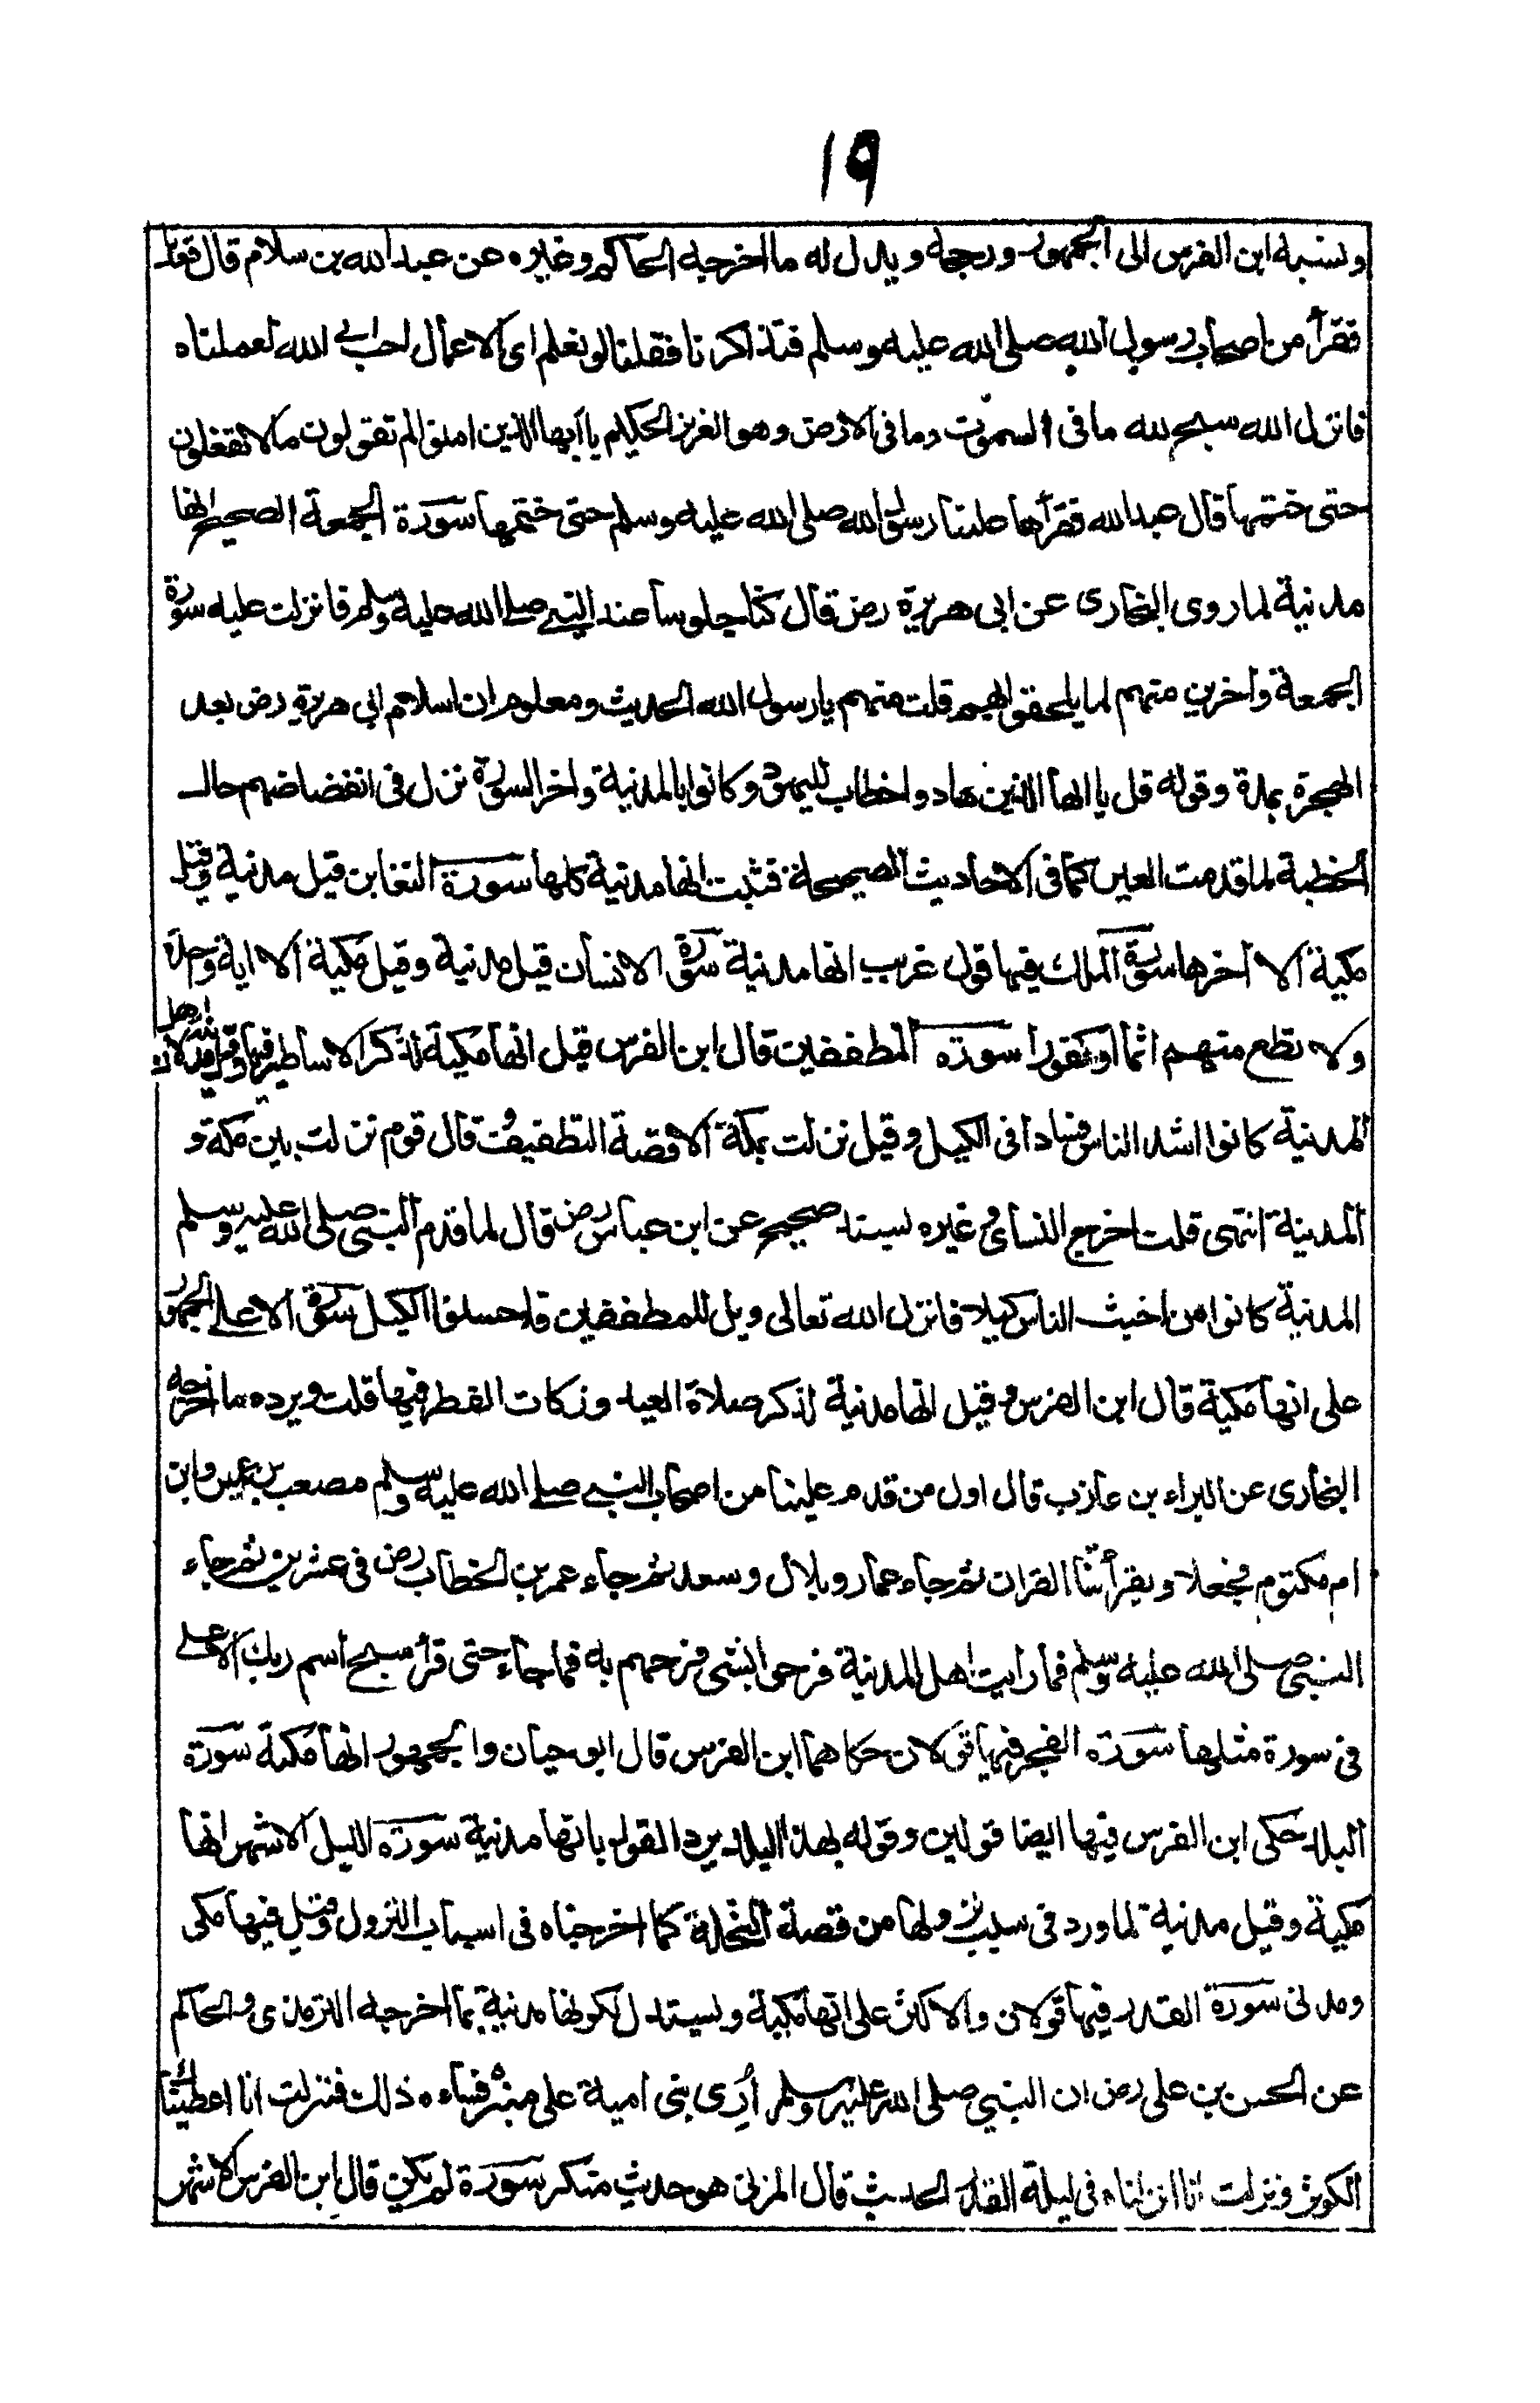 ١٩
ونسبه ابن الفرس الى الجمهور ورجحه ويدل له ما اخرجه الحاكم وغيره عن عبد الله بن سلام قال قعدنا
نفرأ من اصحاب رسول الله صلى الله عليه وسلم فتذاكرنا فقلنا لو نعلم اى الاعمال احب الى الله لعملناه
فانزل الله سبح لله ما فى السموت وما فى الارض وهو العزيز الحكيم يا ايها الذين امنوا لم تقولون مالا تفعلون
حتى ختمها قال عبد الله فقرأها علينا رسول الله صلى الله عليه وسلم حتى ختمها سورة الجمعة الصحيح انها
مدنية لما روى البخارى عن ابى هريرة رض قال كنا جلوسا عند النبى صلى الله عليه وسلم فانزلت عليه سورة
الجمعة واخرين منهم لما يلحقوا بهم قلت منهم يا رسول الله الحديث ومعلوم ان اسلام ابى هريرة رض بعد
الهجرة بمدة وقوله قل يا ايها الذين هادوا خطاب لليهود وكانوا بالمدنية واخر السورة نزل فى انفضاضهم حال
الخطبة لما قدمت العير كما فى الاحاديث الصحيحة فثبت انها مدنية كلها سورة التغابن قيل مدنية وقيل
مكية الا اخرها سورة الملك فيها قول غريب انها مدنية سورة الانسان قيل مدنية وقيل مكية الا اية واحدة
ولا تطع منهم اثما او كفورا سورة المطففين قال ابن الفرس قيل انها مكية لذكر الاساطير فيها وقيل مدنية لان اهل
المدنية كانوا اشد الناس فسادا فى الكيل وقيل نزلت بمكة الا قصة التطفيف وقال قوم نزلت بين مكة و
المدنية انتهى قلت اخرج النسائى وغيره بسند صحيح عن ابن عباس رض قال لما قدم النبى صلى الله عليه وسلم
المدنية كانوا من اخبث الناس كيلا فانزل الله تعالى ويل للمطففين فاحسنوا الكيل سورة الاعلى الجمهور
على انها مكية قال ابن الفرس وقيل انها مدنية لذكر صلاة العيد وزكات الفطر فيها قلت ويرده ما اخرجه
البخارى عن البراء بن عازب قال اول من قدم علينا من اصحاب النبى صلى الله عليه وسلم مصعب بن عمير وابن
ام مكتوم فجعلا ويقرأننا القران ثم جاء عمار وبلال وسعد ثم جاء عمر بن الخطاب رض فى عشرين ثم جاء
النبى صلى الله عليه وسلم فما رايت اهل المدنية فرحوا بشى فرحهم به فما جاء حتى قرأ سبح اسم ربك الاعلى
فى سورة مثلها سورة الفجر فيها قولان حكاهما ابن الفرس قال ابو حيان والجمهور انها مكية سورة
البلد حكى ابن الفرس فيها ايضا قولين وقوله بهذا البلد يرد القول بانها مدنية سورة الليل الاشهر انها
مكية وقيل مدنية لما ورد فى سبب نزولها من قصة النخلة كما اخرجناه فى اسباب النزول وقيل فيها مكى
ومدنى سورة القدر فيها قولان والاكثر على انها مكية ويستدل لكونها مدنية بما اخرجه الترمذى والحاكم
عن الحسن بن على رض ان النبى صلى الله عليه وسلم أرى بنى امية على منبره فساءه ذلك فنزلت انا اعطيناك
الكوثر ونزلت انا انزلناه فى ليلة القدر الحديث قال المزنى هو حديث منكر سورة لم يكن قال ابن الفرس الاشهر